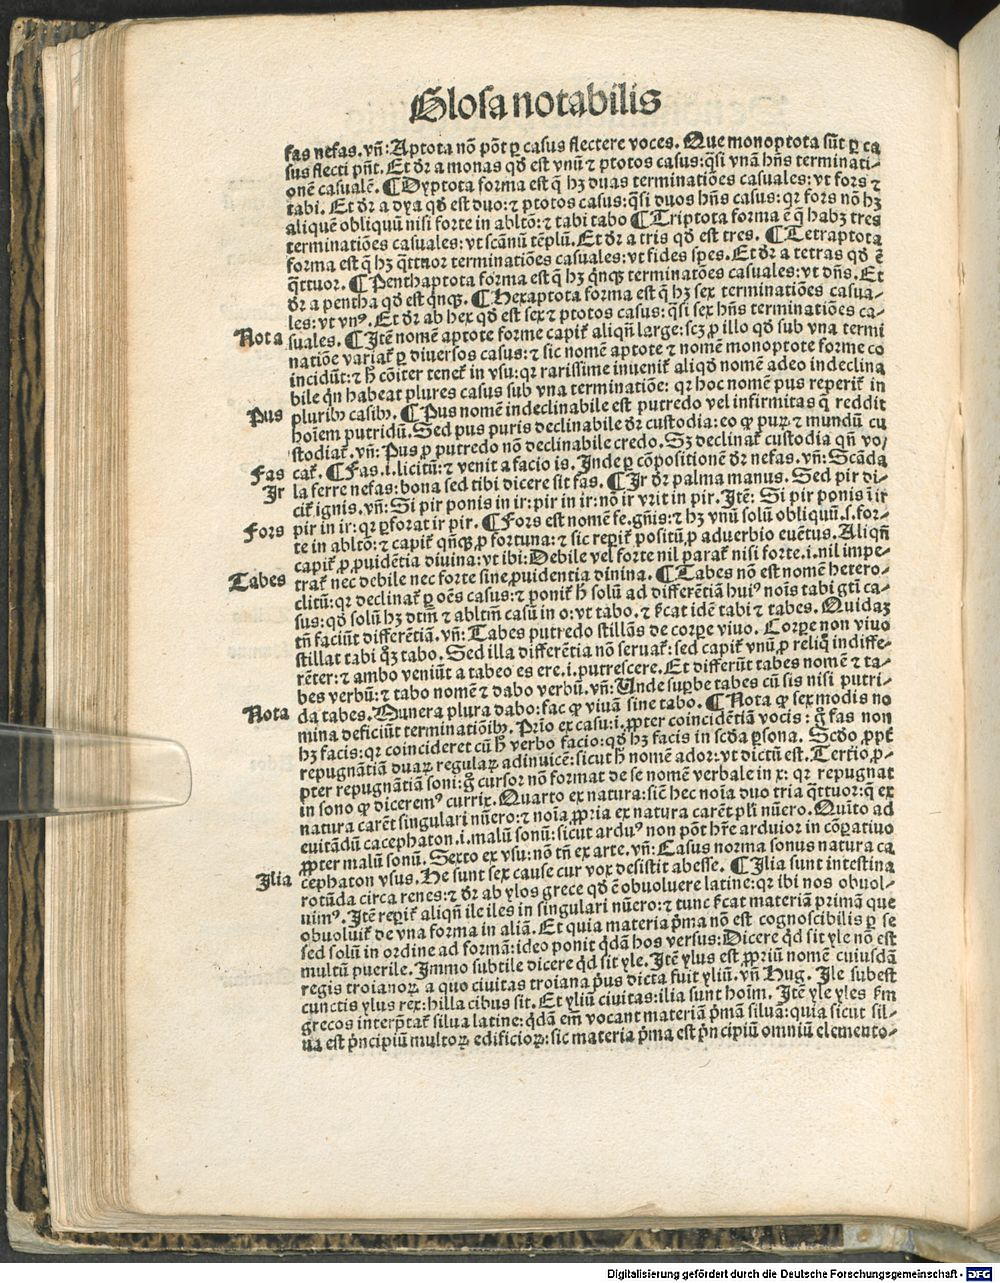 Glosa notabilis
fas nefas. vñ: Aptota nõ põt ꝑ casus flectere voces. Que monoptota sũt ꝑ ca
sus flecti pñt. Et dr̄ a monas qď est vnũ ⁊ ptotos casus: q̃si vnã hñs terminati-
onẽ casualẽ. ¶ Dyptota forma est q̃ hꝫ duas terminatiões casuales: vt fors ⁊
tabi. Et dr̄ a dya qď est duo: ⁊ ptotos casus: q̃si duos hñs casus: qr fors nõ hꝫ
aliquẽ obliquũ nisi forte in abltõ: ⁊ tabi tabo ¶ Triptota forma ẽ q̃ habꝫ tres
terminatiões casuales: vt scãnũ tẽplũ. Et dr̄ a tris qď est tres. ¶ Tetraptota
forma est q̃ hꝫ q̃ttuor terminatiões casuales: vt fides spes. Et dr̄ a tetras qď ẽ
q̃ttuor. ¶ Penthaptota forma est q̃ hꝫ q̃nqꝫ terminatões casuales: vt dñs. Et
dr̄ a pentha qď est q̃nqꝫ. ¶ Hexaptota forma est q̃ hꝫ sex terminatiões casua-
les: vt vnꝰ. Et dr̄ ab hex qď est sex ⁊ ptotos casus: q̃si sex hñs terminatiões ca-
Nota suales. ¶ Itẽ nomẽ aptote forme capit᷑ aliqñ large: scꝫ ꝓ illo qď sub vna termi
natiõe variat᷑ ꝑ diuersos casus: ⁊ sic nomẽ aptote ⁊ nomẽ monoptote forme co
incidũt: ⁊ h̃ cõiter tenet᷑ in vsu: qr rarissime inuenit᷑ aliqď nomẽ adeo indeclina
bile q̃n habeat plures casus sub vna terminatiõe: qr hoc nomẽ pus reperit᷑ in
Pus pluribꝫ casibꝫ. ¶ Pus nomẽ indeclinabile est putredo vel infirmitas q̃ reddit
hoĩem putridũ. Sed pus puris declinabile dr̄ custodia: eo ꝙ puꝝ ⁊ mundũ cu
stodiat᷑. vñ: Pus ꝓ putredo nõ declinabile credo. Sꝫ declinat᷑ custodia qñ vo-
Fas cat᷑. ¶ Fas .i. licitũ: ⁊ venit a facio is. Inde ꝑ cõpositionẽ dr̄ nefas. vñ: Scãda
Ir la ferre nefas: bona sed tibi dicere sit fas. ¶ Ir dr̄ palma manus. Sed pir di-
cit᷑ ignis. vñ: Si pir ponis in ir: pir in ir: nõ ir vrit in pir. Itẽ: Si pir ponis ĩ ir
Fors pir in ir: qr ꝑforat ir pir. ¶ Fors est nomẽ fe. gñis: ⁊ hꝫ vnũ solũ obliquũ .s. for-
te in abltõ: ⁊ capit᷑ qñqꝫ ꝓ fortuna: ⁊ sic reꝑit᷑ positũ ꝓ aduerbio euẽtus. Aliqñ
capit᷑ ꝓ ꝓuidẽtia diuina: vt ibi: Debile vel forte nil parat᷑ nisi forte .i. nil impe-
Tabes trat᷑ nec debile nec forte sine ꝓuidentia diuina. ¶ Tabes nõ est nomẽ hetero-
clitũ: qr declinat᷑ ꝑ oẽs casus: ⁊ ponit᷑ h̃ solũ ad differẽtiã huiꝰ noĩs tabi gtĩ ca-
sus: qď solũ hꝫ dtm̃ ⁊ abltm̃ casũ in o: vt tabo. ⁊ s̃cat idẽ tabi ⁊ tabes. Quidaꝫ
tñ faciũt differẽtiã. vñ: Tabes putredo stillãs de corꝑe viuo. Corꝑe non viuo
stillat tabi qꝫ tabo. Sed illa differẽtia nõ seruat᷑: sed capit᷑ vnũ ꝓ reliq̊ indiffe-
rẽter: ⁊ ambo veniũt a tabeo es ere .i. putrescere. Et differũt tabes nomẽ ⁊ ta-
bes verbũ: ⁊ tabo nomẽ ⁊ dabo verbũ. vñ: Unde suꝑbe tabes cũ sis nisi putri-
Nota da tabes. Munera plura dabo: fac ꝙ viuã sine tabo. ¶ Nota ꝙ sex modis no
mina deficiũt terminatiõibꝫ. Prĩo ex casu .i. ꝓpter coincidẽtiã vocis: g̊ fas non
hꝫ facis: qr coincideret cũ h̃ verbo facio: qď hꝫ facis in scďa ꝑsona. Scďo ꝓpt᷑
repugnãtiã duaꝝ regulaꝝ adinuicẽ: sicut h̃ nomẽ ador: vt dictũ est. Tertio ꝓ-
pter repugnãtiã soni: g̊ cursor nõ format de se nomẽ verbale in x: qr repugnat
in sono ꝙ diceremꝰ currix. Quarto ex natura: sicut hec noĩa duo tria q̃ttuor: q̃ ex
natura carẽt singulari nũero: ⁊ noĩa ꝓpria ex natura carẽt pl̃i nũero. Quĩto ad
euitãdũ cacephaton .i. malũ sonũ: sicut arduꝰ non põt hr̃e arduior in cõꝑatiuo
ꝓpter malũ sonũ. Sexto ex vsu: nõ tñ ex arte. vñ: Casus norma sonus natura ca
cephaton vsus. He sunt sex cause cur vox desistit abesse. ¶ Ilia sunt intestina
Ilia rotũda circa renes: ⁊ dr̄ ab ylos grece qď ẽ obuoluere latine: qr ibi nos obuol-
uimꝰ. Itẽ reꝑit᷑ aliqñ ile iles in singulari nũero: ⁊ tunc s̃cat materiã primã que
obuoluit᷑ de vna forma in aliã. Et quia materia pr̃ma nõ est cognoscibilis ꝑ se
sed solũ in ordine ad formã: ideo ponit q̃dã hos versus: Dicere q̃d sit yle nõ est
multũ puerile. Immo subtile dicere q̃d sit yle. Itẽ ylus est ꝓpriũ nomẽ cuiusdã
regis troianoꝝ a quo ciuitas troiana pr̃us dicta fuit yliũ. vñ Hug. Ile subest
cunctis ylus rex: hilla cibus sit. Et yliũ ciuitas: ilia sunt hoĩm. Itẽ yle yles s̃m
grecos interp̃tat᷑ silua latine: q̃dã em̃ vocant materiã pr̃mã siluã: quia sicut sil-
ua est pr̃ncipiũ multoꝝ edificioꝝ: sic materia pr̃ma est pr̃ncipiũ omniũ elemento-
Digitalisierung gefördert durch die Deutsche Forschungsgemeinschaft - DFG